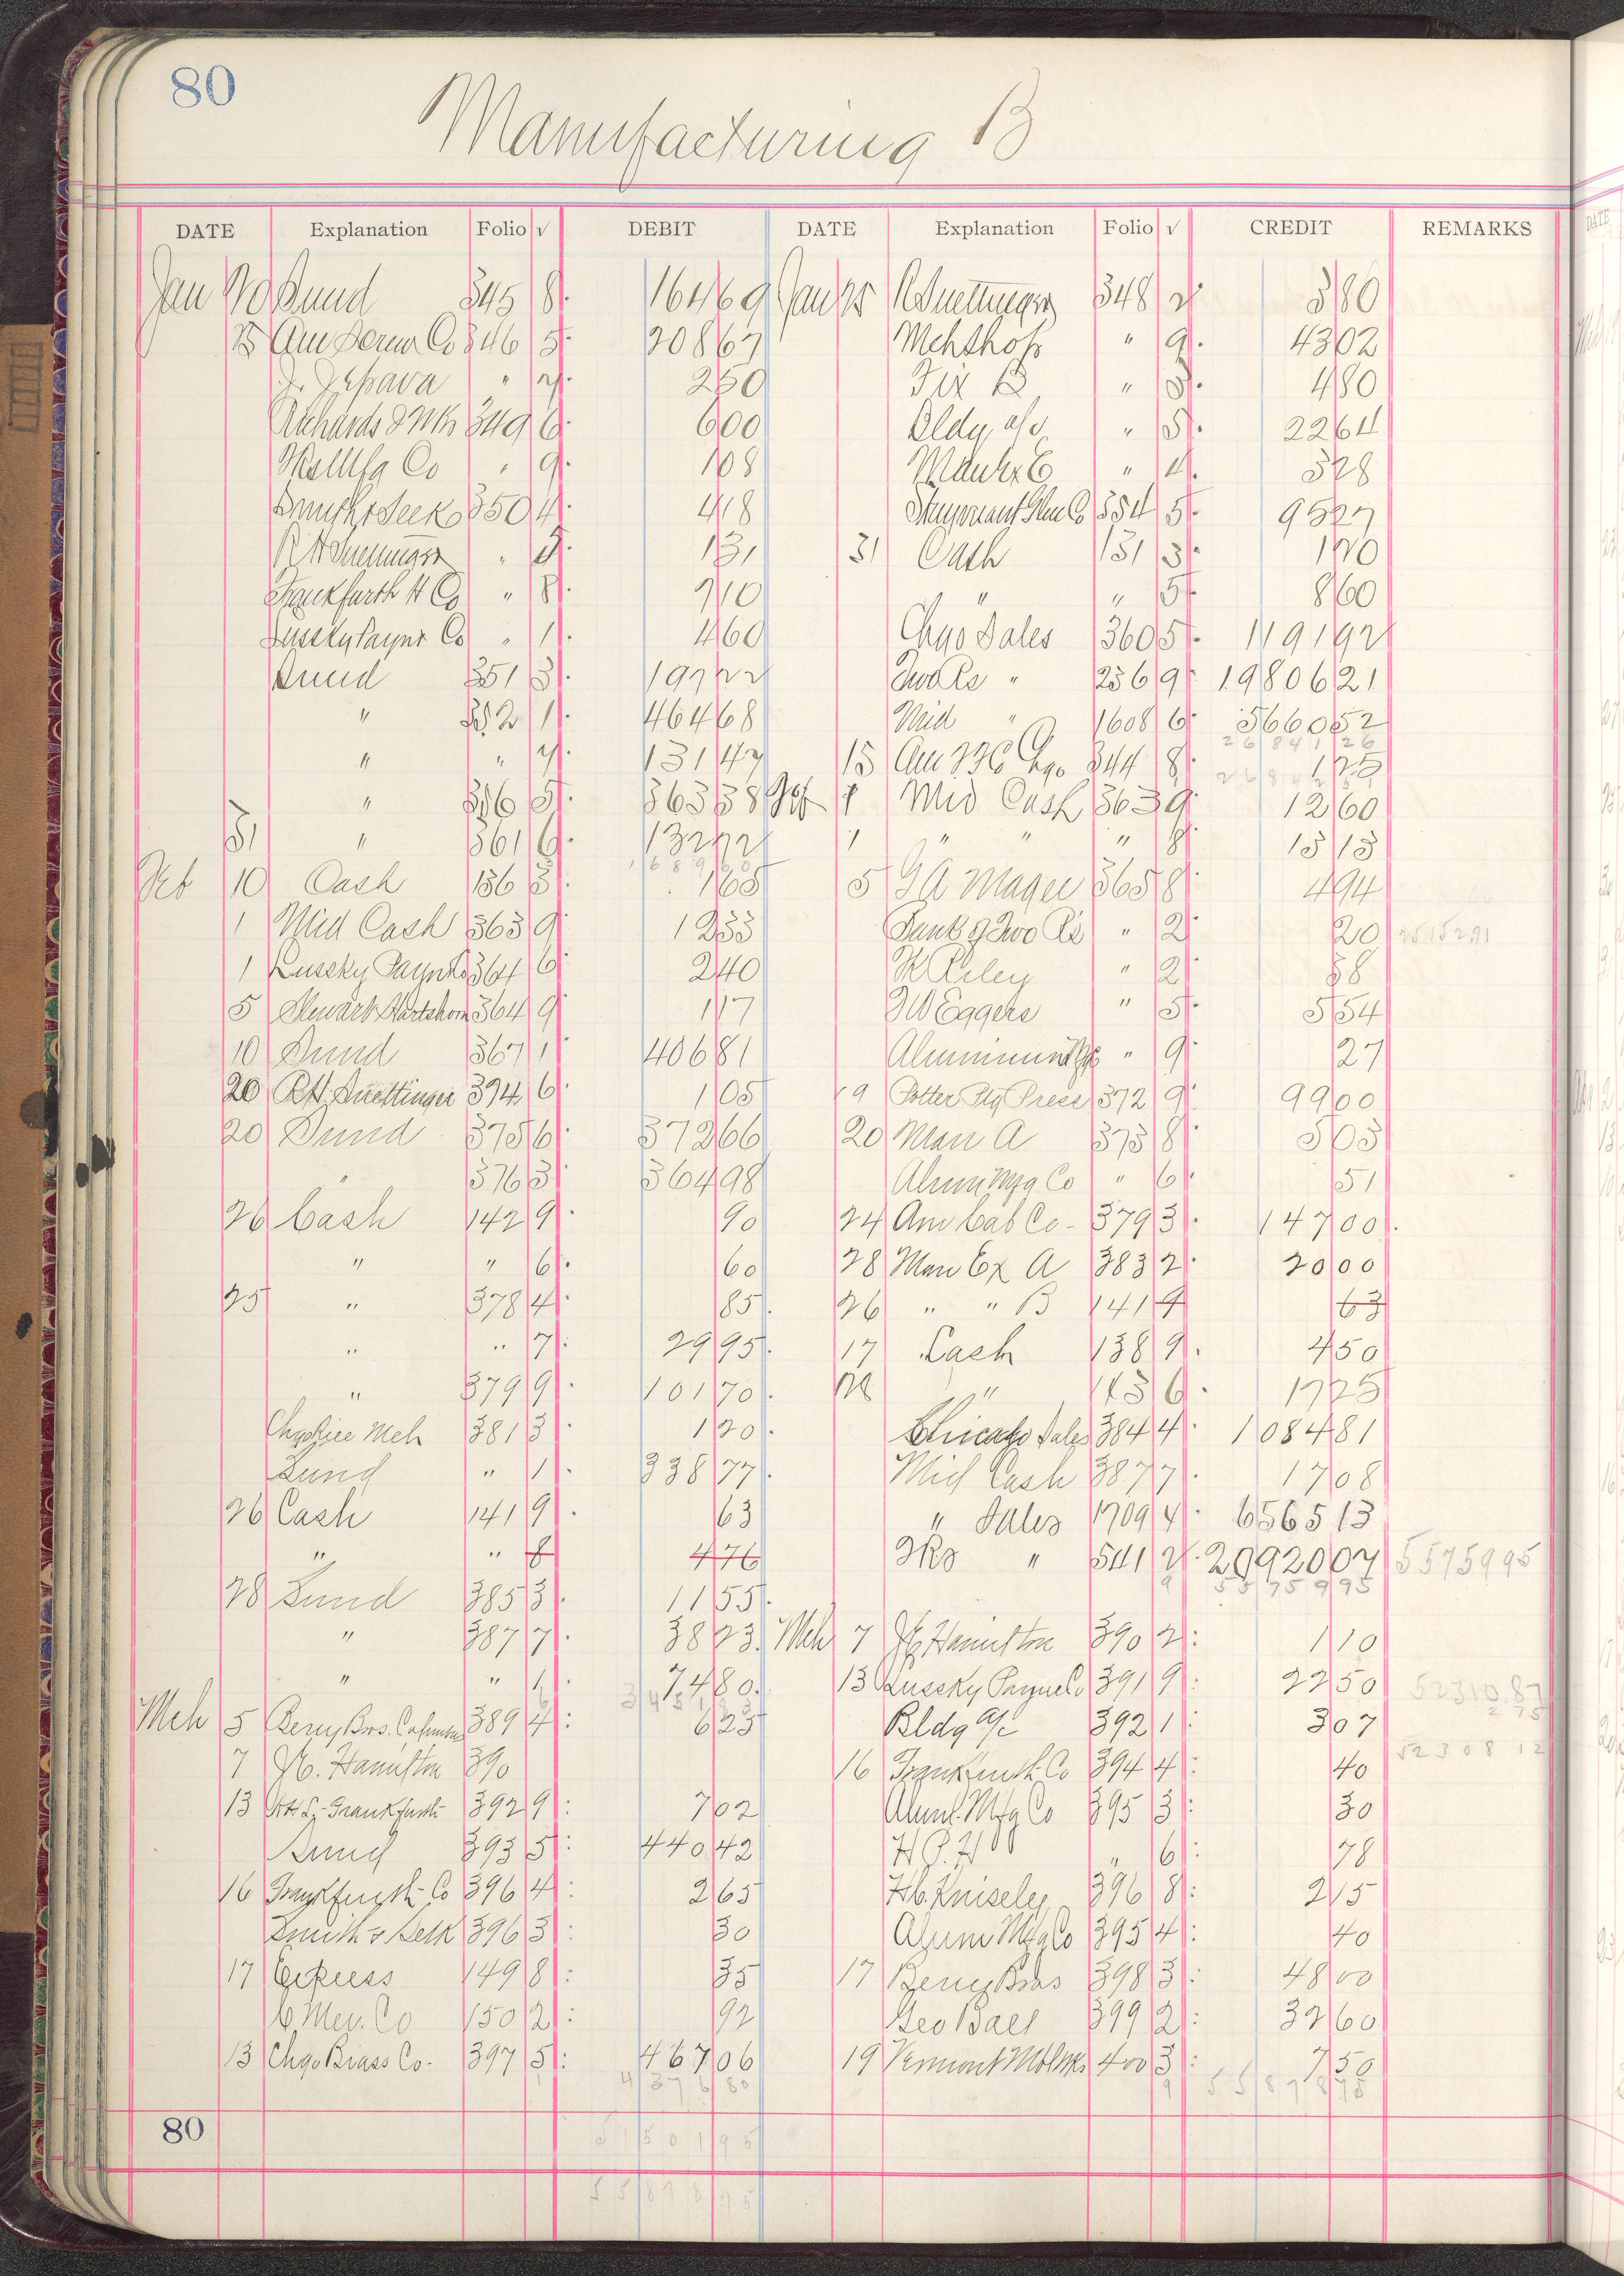 80
Manufacturing B
DATE Explanation Folio √ DEBIT DATE Explanation Folio √ CREDIT REMARKS
Jan 20 Sund 345 8 164 69 Jan 25 348 2 3 80
25 Am Screw Co 346 5 208 67 Mch Shop " 9 43 02
" 7 2 50 Fix B " 3 4 80
Richards & Wk 349 6 6 00 Bldg a/c " 5 22 64
Mfg Co " 9 1 08 Man Ex " 4 3 28
350 4 4 18 Co 354 5 95 27
" 1 31 31 Cash 131 3 1 70
Frankfurth H Co " 8 7 10 " " 5 8 60
Lussky Payn Co " 1 4 60 Chgo Sales 360 5 1191 92
Sund 351 3 197 22 Two Rs " 236 9 19806 21
" 352 1 464 68 Mid " 1608 6 5660 52
26841 26
" " 7 131 47 15 Am Chgo 344 8 1 25
" 356 5 363 38 Feb 1 Mid Cash 363 9 12 60
31 " 361 6 132 72 1 " " " 8 15 13
Feb 10 Cash 136 3 1 65 5 G A Magee 365 8 4 94
1 Mid Cash 363 9 12 33 Bank of Two Rs " 2 20
1 Lussky Payn 364 6 2 40 K Riley " 2 58
5 Stewart Hartshorn 364 9 1 17 Eggers " 5 5 54
10 Sund 367 1 406 81 Aluminum " 9 27
20 R H Suettinger 374 6 1 05 19 Potter Ptg Press 372 9 99 00
20 Sund 375 6 372 66 20 Man A 373 8 5 03
" 376 3 364 98 Alum Mfg Co " 6 51
26 Cash 142 9 90 24 Am Cab Co 379 3 147 00
" " 6 60 28 Man Ex A 383 2 20 00
25 " 378 4 85 26 " " B 141 9 63
" " 7 29 95 17 Cash 138 9 4 50
" 379 9 101 70 28 " 143 6 17 25
Chgo Rice Mch 381 3 1 20 Chicago Sales 384 4 1084 81
Sund " 1 338 77 Mid Cash 387 7 17 08
26 Cash 141 9 63 " Sales 1709 4 6565 13
" " 8 4 76 2Rs " 541 2 20920 07 55759 95
55759 95
28 Sund 385 3 11 55
" 387 7 38 23 Mch 7 Hamilton 390 2 1 10
" " 1 74 80 13 Lussky Payne Co 391 9 22 50 52310 87
Mch 5 Berry Bros. 389 4 6 25 Bldg a/c 392 1 3 07 2 75
7 Hamilton 390 16 Frankfurth Co 394 4 40 52308 12
13 Frankfurth 392 9 7 02 Alum. Mfg Co 395 3 30
Sund 393 5 440 42 H P. H " 6 78
16 Frankfurth Co 396 4 2 65 Knisely 396 8 2 15
Smith & Selk 396 3 30 Alum Mfg Co 395 4 40
17 Express 149 8 35 17 Berry Bros 398 3 48 00
Mer. Co 150 2 92 Geo Ball 399 2 32 60
13 Chgo Brass Co. 397 5 467 06 19 Vermont 400 3 7 50
4376 80 55878 75
80
51501 95
55878 75